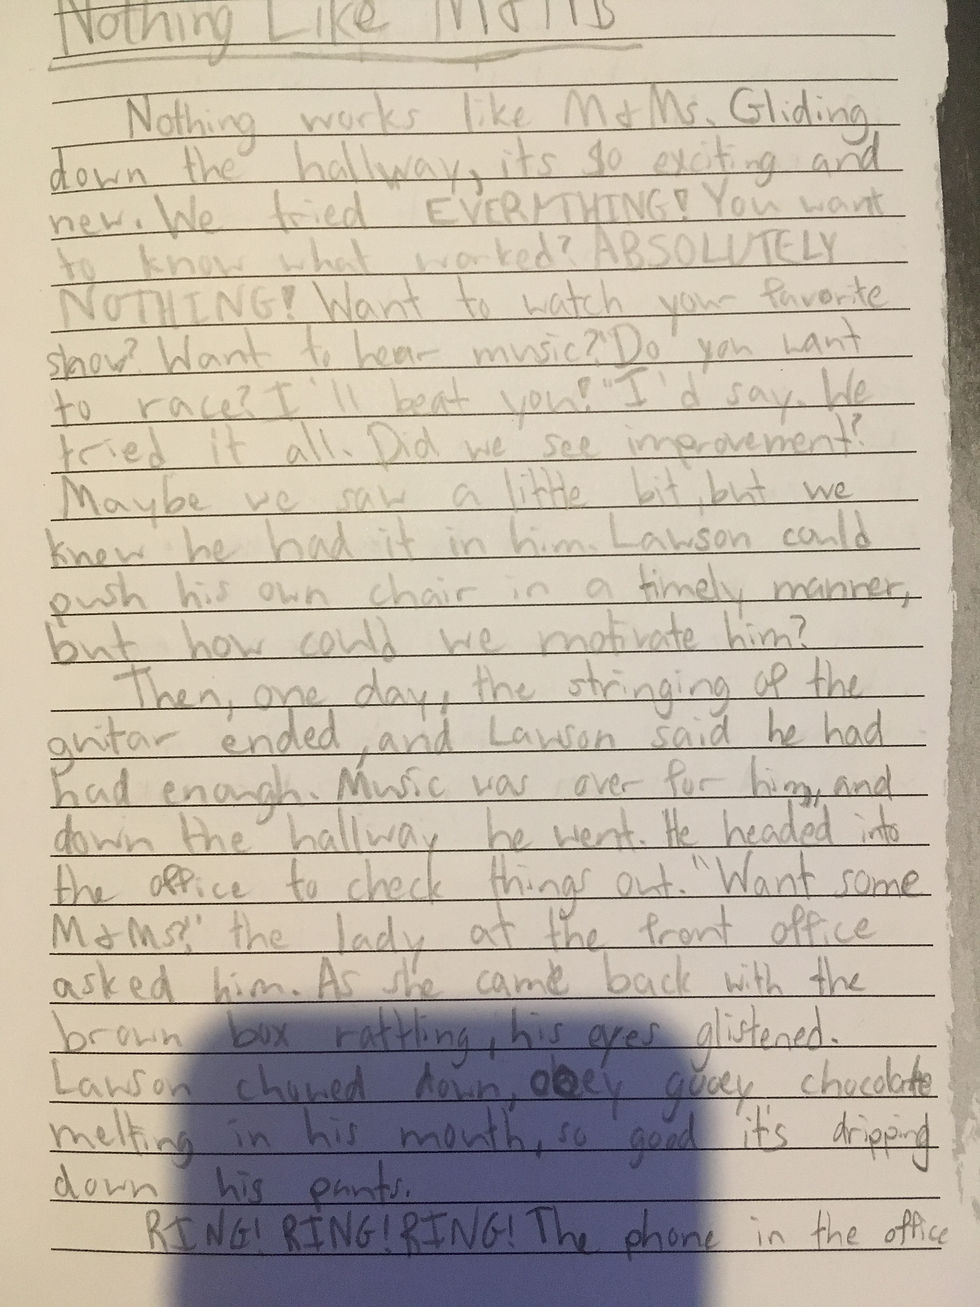 Nothing Like M&Ms
Nothing works like M&Ms. Gliding
down the hallway, its so exciting and
new. We tried EVERYTHING! You want
to know what worked? ABSOLUTELY
NOTHING! Want to watch your favorite
show? Want to hear music? "Do you want
to race? I'll beat you!" I'd say. We
tried it all. Did we see improvement?
Maybe we saw a little bit, but we
knew he had it in him. Lawson could
push his own chair in a timely manner,
but how could we motivate him?
Then, one day, the stringing of the
guitar ended, and Lawson said he had
had enough. Music was over for him, and
down the hallway he went. He headed into
the office to check things out. "Want some
M&Ms?" the lady at the front office
asked him. As she came back with the
brown box rattling, his eyes glistened.
Lawson chowed down, ooey gooey chocolate
melting in his mouth, so good it's dripping
down his pants.
RING! RING! RING! The phone in the office